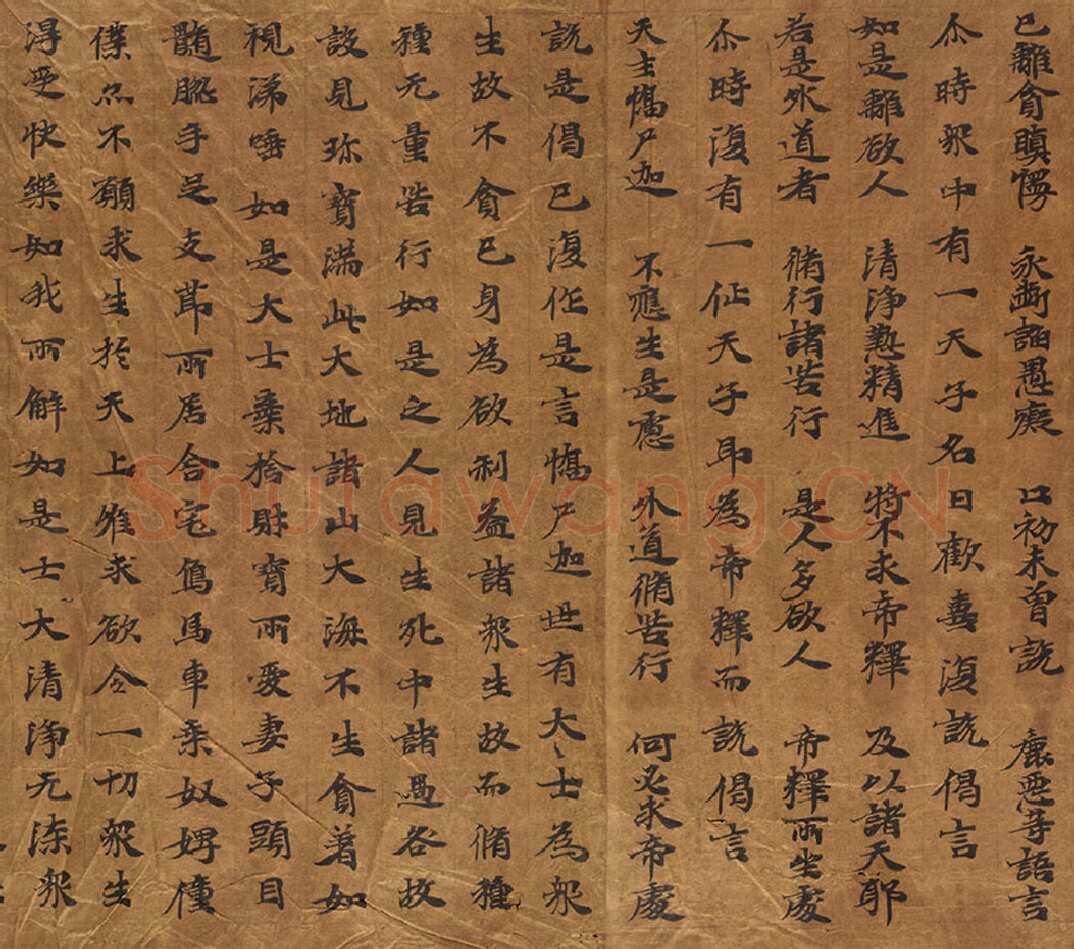 已離貪瞋慢　永斷諂愚癡　口初未曾說　麁惡等語言
尒時眾中有一天子名曰歡喜復說偈言
如是離欲人　清淨懃精進　將不求帝釋　及以諸天耶
若是外道者　脩行諸苦行　是人多欲人　帝釋所坐處
尒時復有一仙天子即為帝釋而說偈言
天主憍尸迦　不應生是慮　外道脩苦行　何必求帝處
說是偈已復作是言憍尸迦世有大〻士為眾
生故不貪已身為欲利益諸眾生故而脩種
種无量苦行如是之人見生死中諸過咎故
設見珎寶滿此大地諸山大海不生貪著如
視涕唾如是大士棄捨財寶所愛妻子頭目
髓腦手足支節所居舍宅鳥馬車乘奴婢僮
僕亦不願求生於天上唯求欲令一切眾生
得受快樂如我所解如是士大清淨无染眾
Shufawang.CN